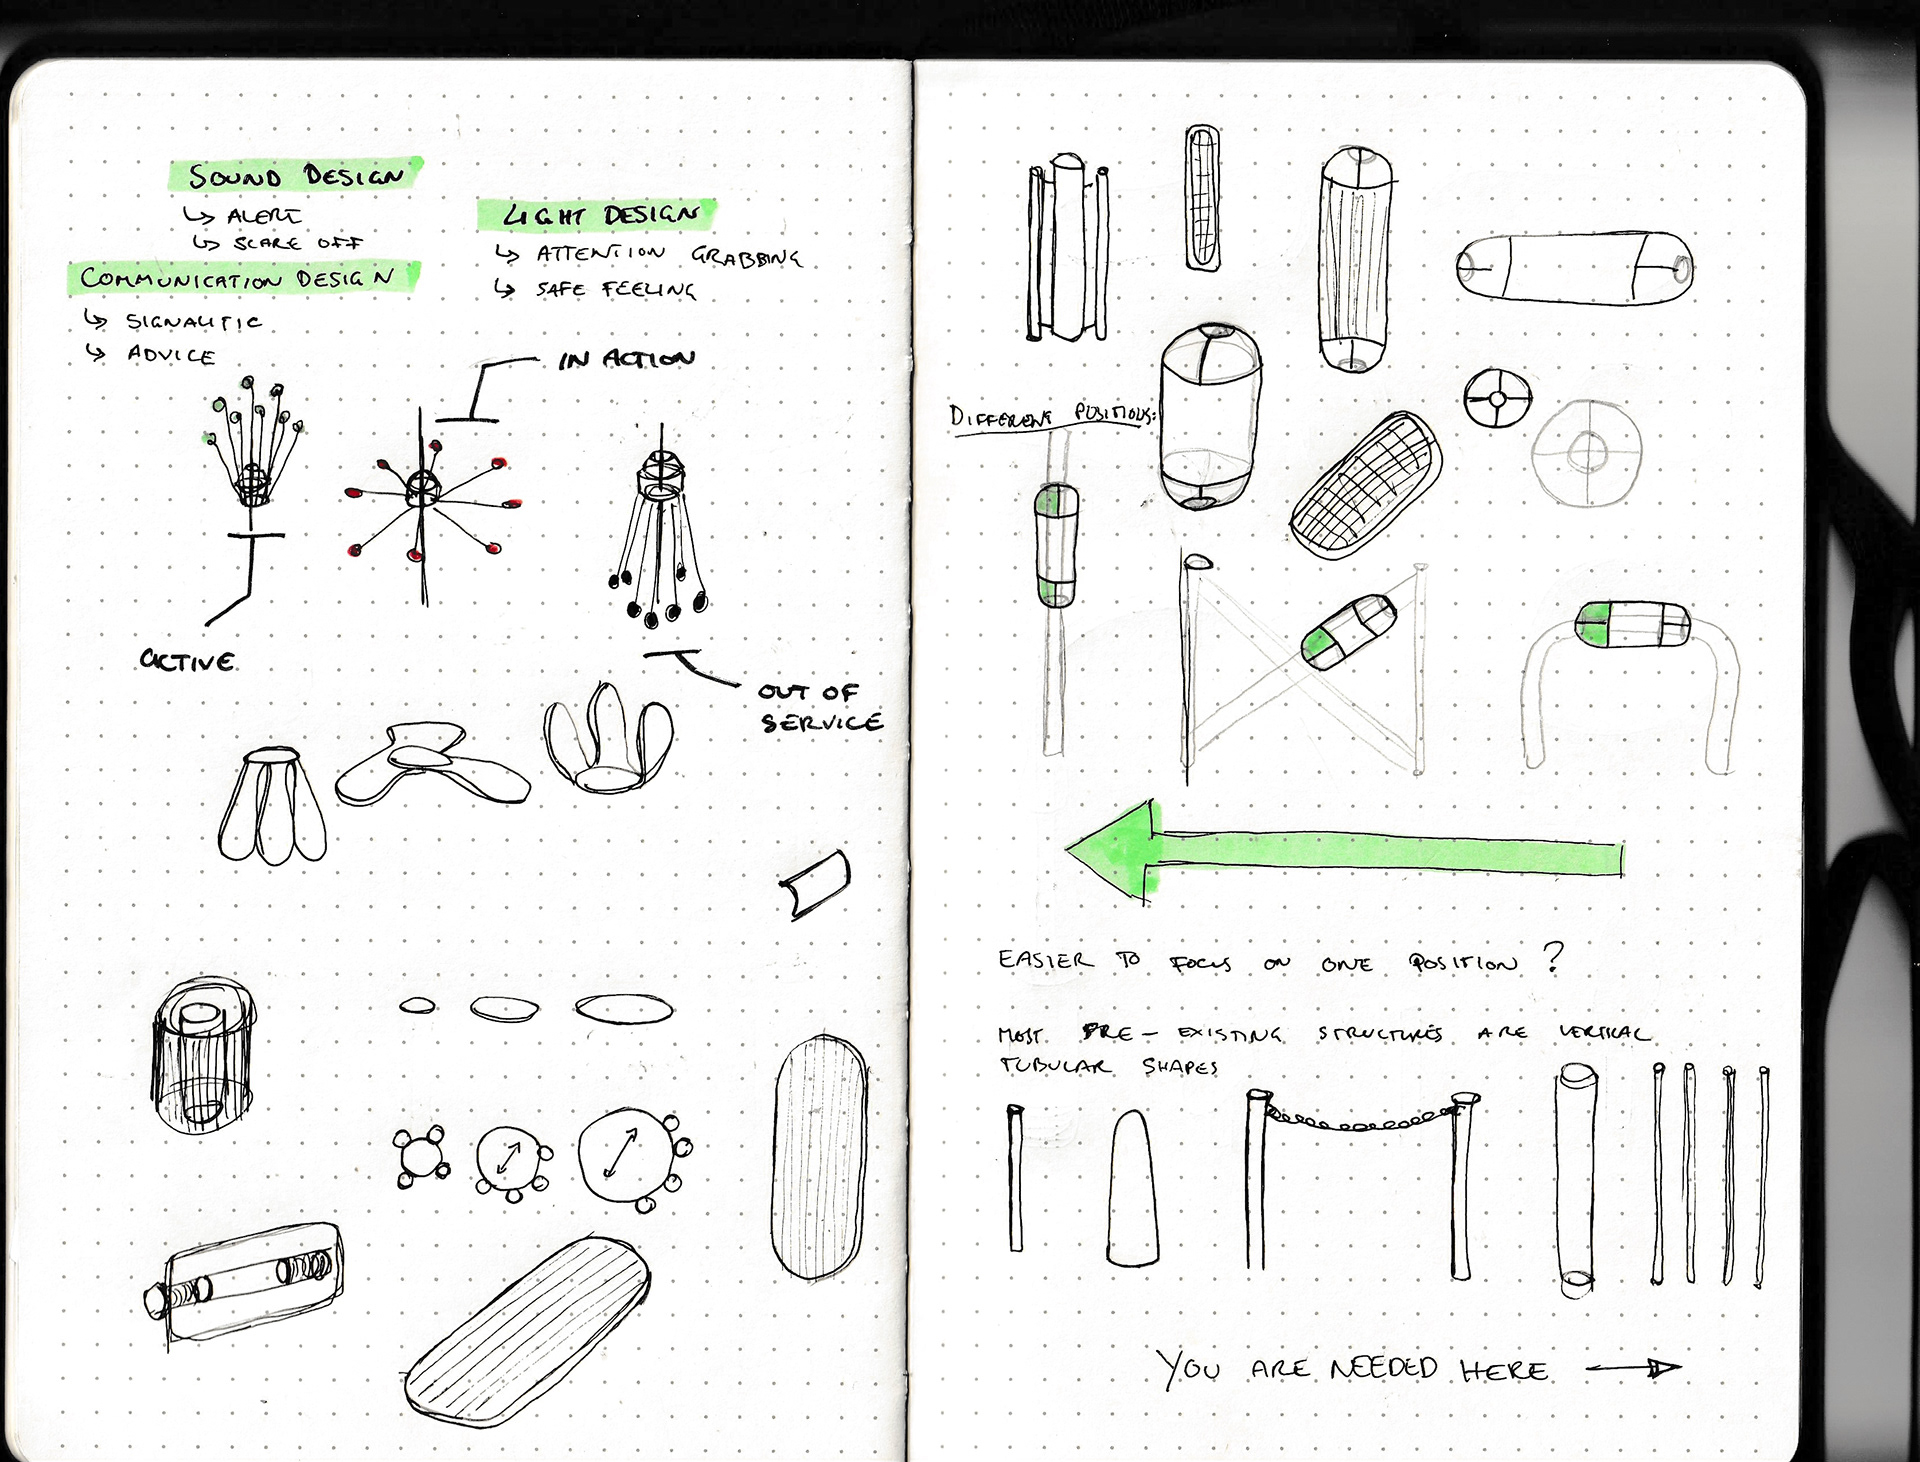 SOUND DESIGN
↳ ALERT
↳ SCARE OFF
COMMUNICATION DESIGN
↳ SIGNALITIC
↳ ADVICE
LIGHT DESIGN
↳ ATTENTION GRABBING
↳ SAFE FEELING
IN ACTION
ACTIVE
OUT OF
SERVICE
DIFFERENT POSITIONS:
EASIER TO FOCUS ON ONE POSITION ?
MOST PRE-EXISTING STRUCTURES ARE VERTICAL
TUBULAR SHAPES
YOU ARE NEEDED HERE →